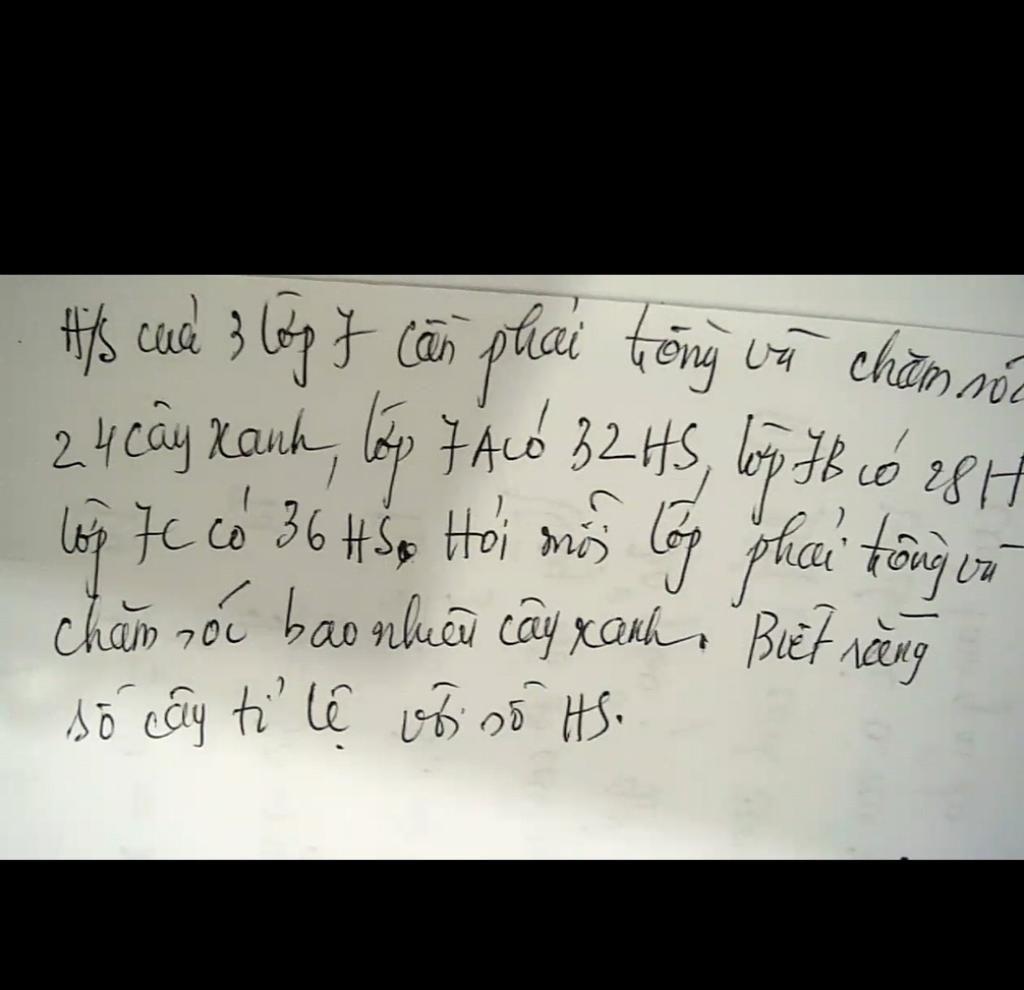 H/S của 3 lớp 7 cần phải trồng và chăm sóc
24 cây xanh, lớp 7A có 32 HS, lớp 7B có 28 H
lớp 7C có 36 HS. Hỏi mỗi lớp phải trồng và
chăm sóc bao nhiêu cây xanh. Biết rằng
số cây tỉ lệ với số HS.